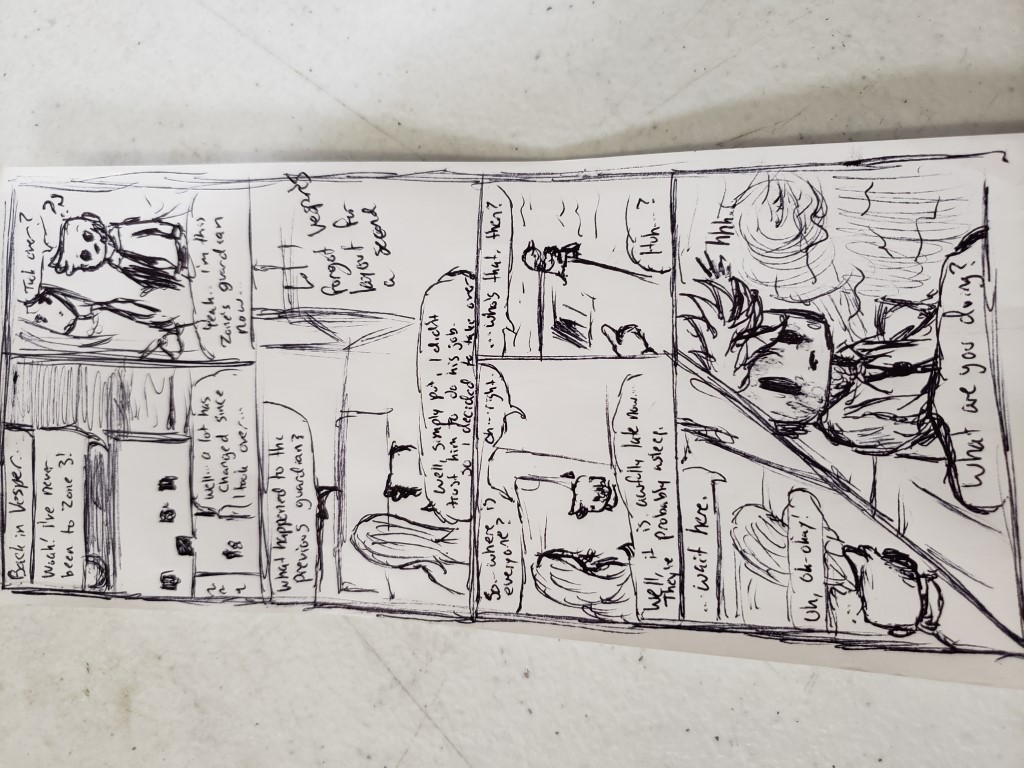 Back in Vesper...
Woah! i've never
been to Zone 3!
well... a lot has
changed since
I took over...
Took over?
Yeah... i'm this
Zone's guardian
now...
What happened to the
previous guardian?
Lol I
forgot Vesper's
layout for
a second
Well, simply put, I didn't
trust him to do his job.
So I decided to take over
So... where is
everyone?
oh... right.
Well, it is awfully late now...
They're probably asleep.
...who's that, then?
Huh...?
...wait here.
Uh, ok-okay!
hhh...
What are you doing?